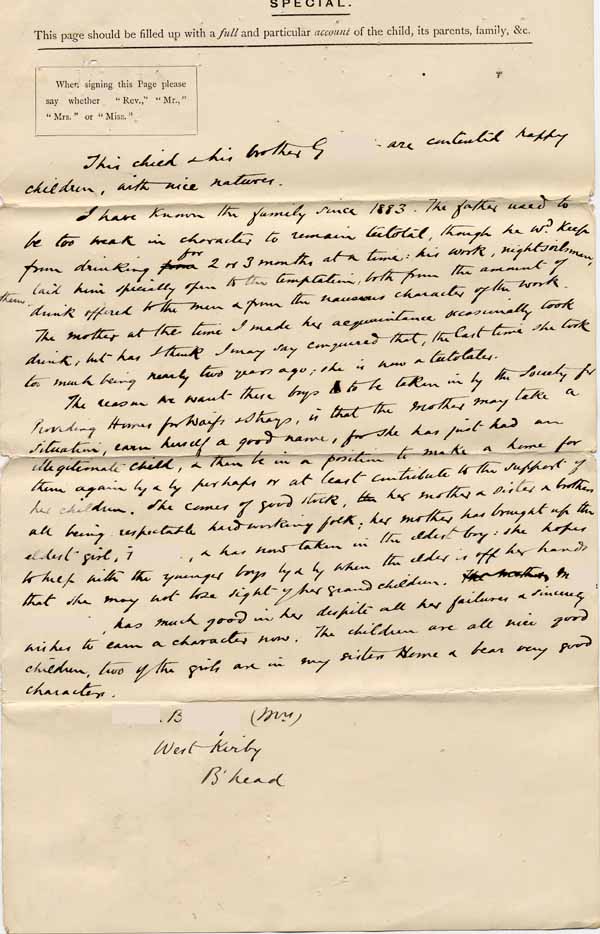 SPECIAL.
This page should be filled up with a full and particular account of the child, its parents, family, &c.
When signing this Page please
say whether "Rev.," "Mr.,"
"Mrs." or "Miss."
This child & his brother G are contented happy
children, with nice natures.
I have known the family since 1883. The father used to
be too weak in character to remain teetotal, though he wd. keep
from drinking for 2 or 3 months at a time: his work, nightsoilsman,
laid him specially open to the temptation, both from the amount of
drink offered to the men & from the nauseous character of the work.
The mother at the time I made her acquaintance occasionally took
drink, but has I think I may say conquered that, the last time she took
too much being nearly two years ago; she is now a teetotaler.
The reason we want these boys to be taken in by the Society for
Providing Homes for Waifs & Strays, is that the mother may take a
situation, earn herself a good name, for she has just had an
illegitimate child, & then be in a position to make a home for
them again by & by perhaps or at least contribute to the support of
her children. She comes of good stock, her mother & sister & brothers
all being respectable hardworking folk; her mother has brought up the
eldest girl, , & has now taken in the eldest boy: she hopes
to help with the younger boys by & by when the elder is off her hands
that she may not lose sight of her grandchildren. The mother M
, has much good in her despite all her failures & sincerely
wishes to earn a character now. The children are all nice good
children, two of the girls are in my sisters Home & bear very good
characters.
B (Mrs)
West Kirby
B'head